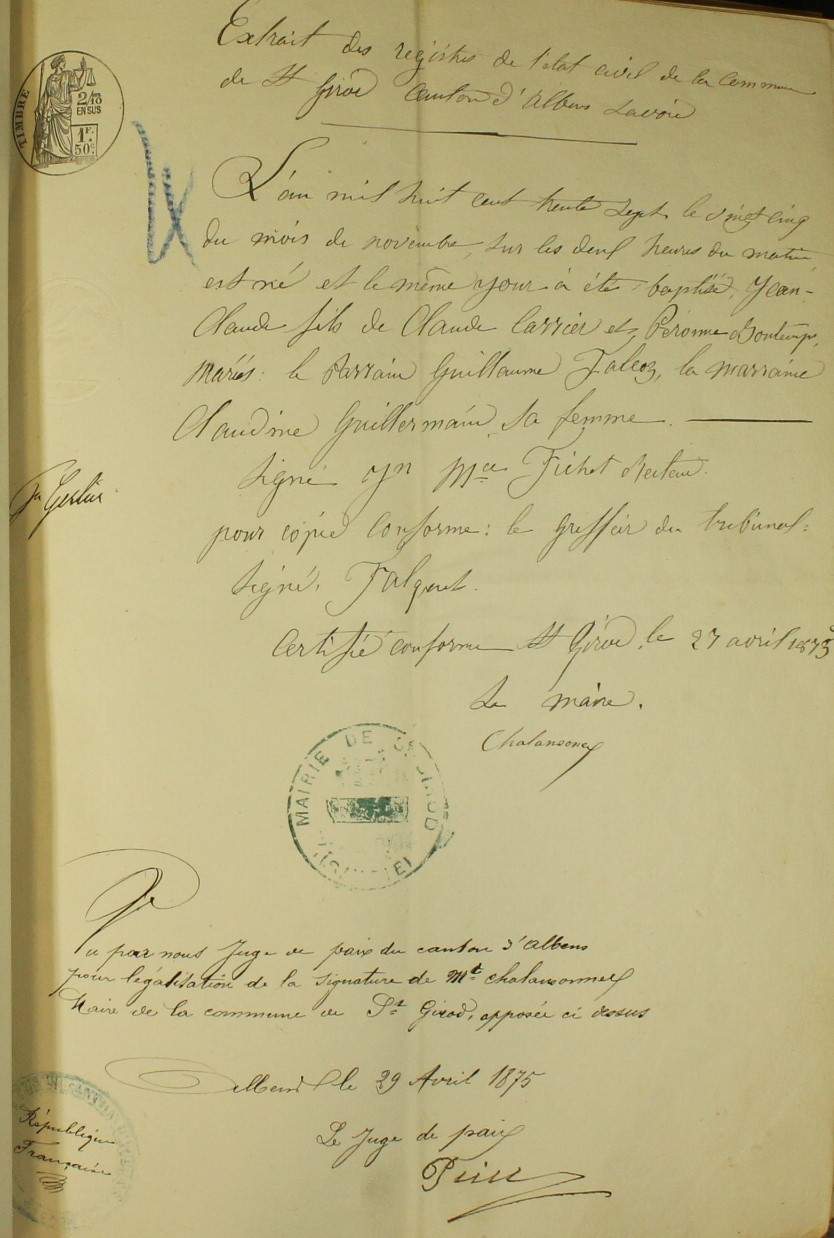 Extrait des registres de l'état civil de la Commune
de St Girod Canton d'Albens Savoie
TIMBRE
2/10
EN SUS
1F.
50c
L'an mil huit cent trente sept le vingt cinq
du mois de novembre, sur les deux heures du matin
est né et le même jour a été baptisé, Jean-
Claude fils de Claude Carrier et Péronne Bontemps,
mariés: le Parrain Guillaume Falcoz, la marraine
Claudine Guillermain, sa femme.
signé Fichet Recteur.
pour copie conforme: le greffier du tribunal:
signé. Falquet.
Certifié conforme St Girod, le 27 avril 1875
Le maire.
Chalansonnex
MAIRIE DE ST GIROD
Vu par nous Juge de paix du canton d'Albens
pour légalisation de la signature de Mr. Chalansonnex
Maire de la commune de St Girod, apposée ci dessus
Albens le 29 Avril 1875
Le Juge de paix
République
Française